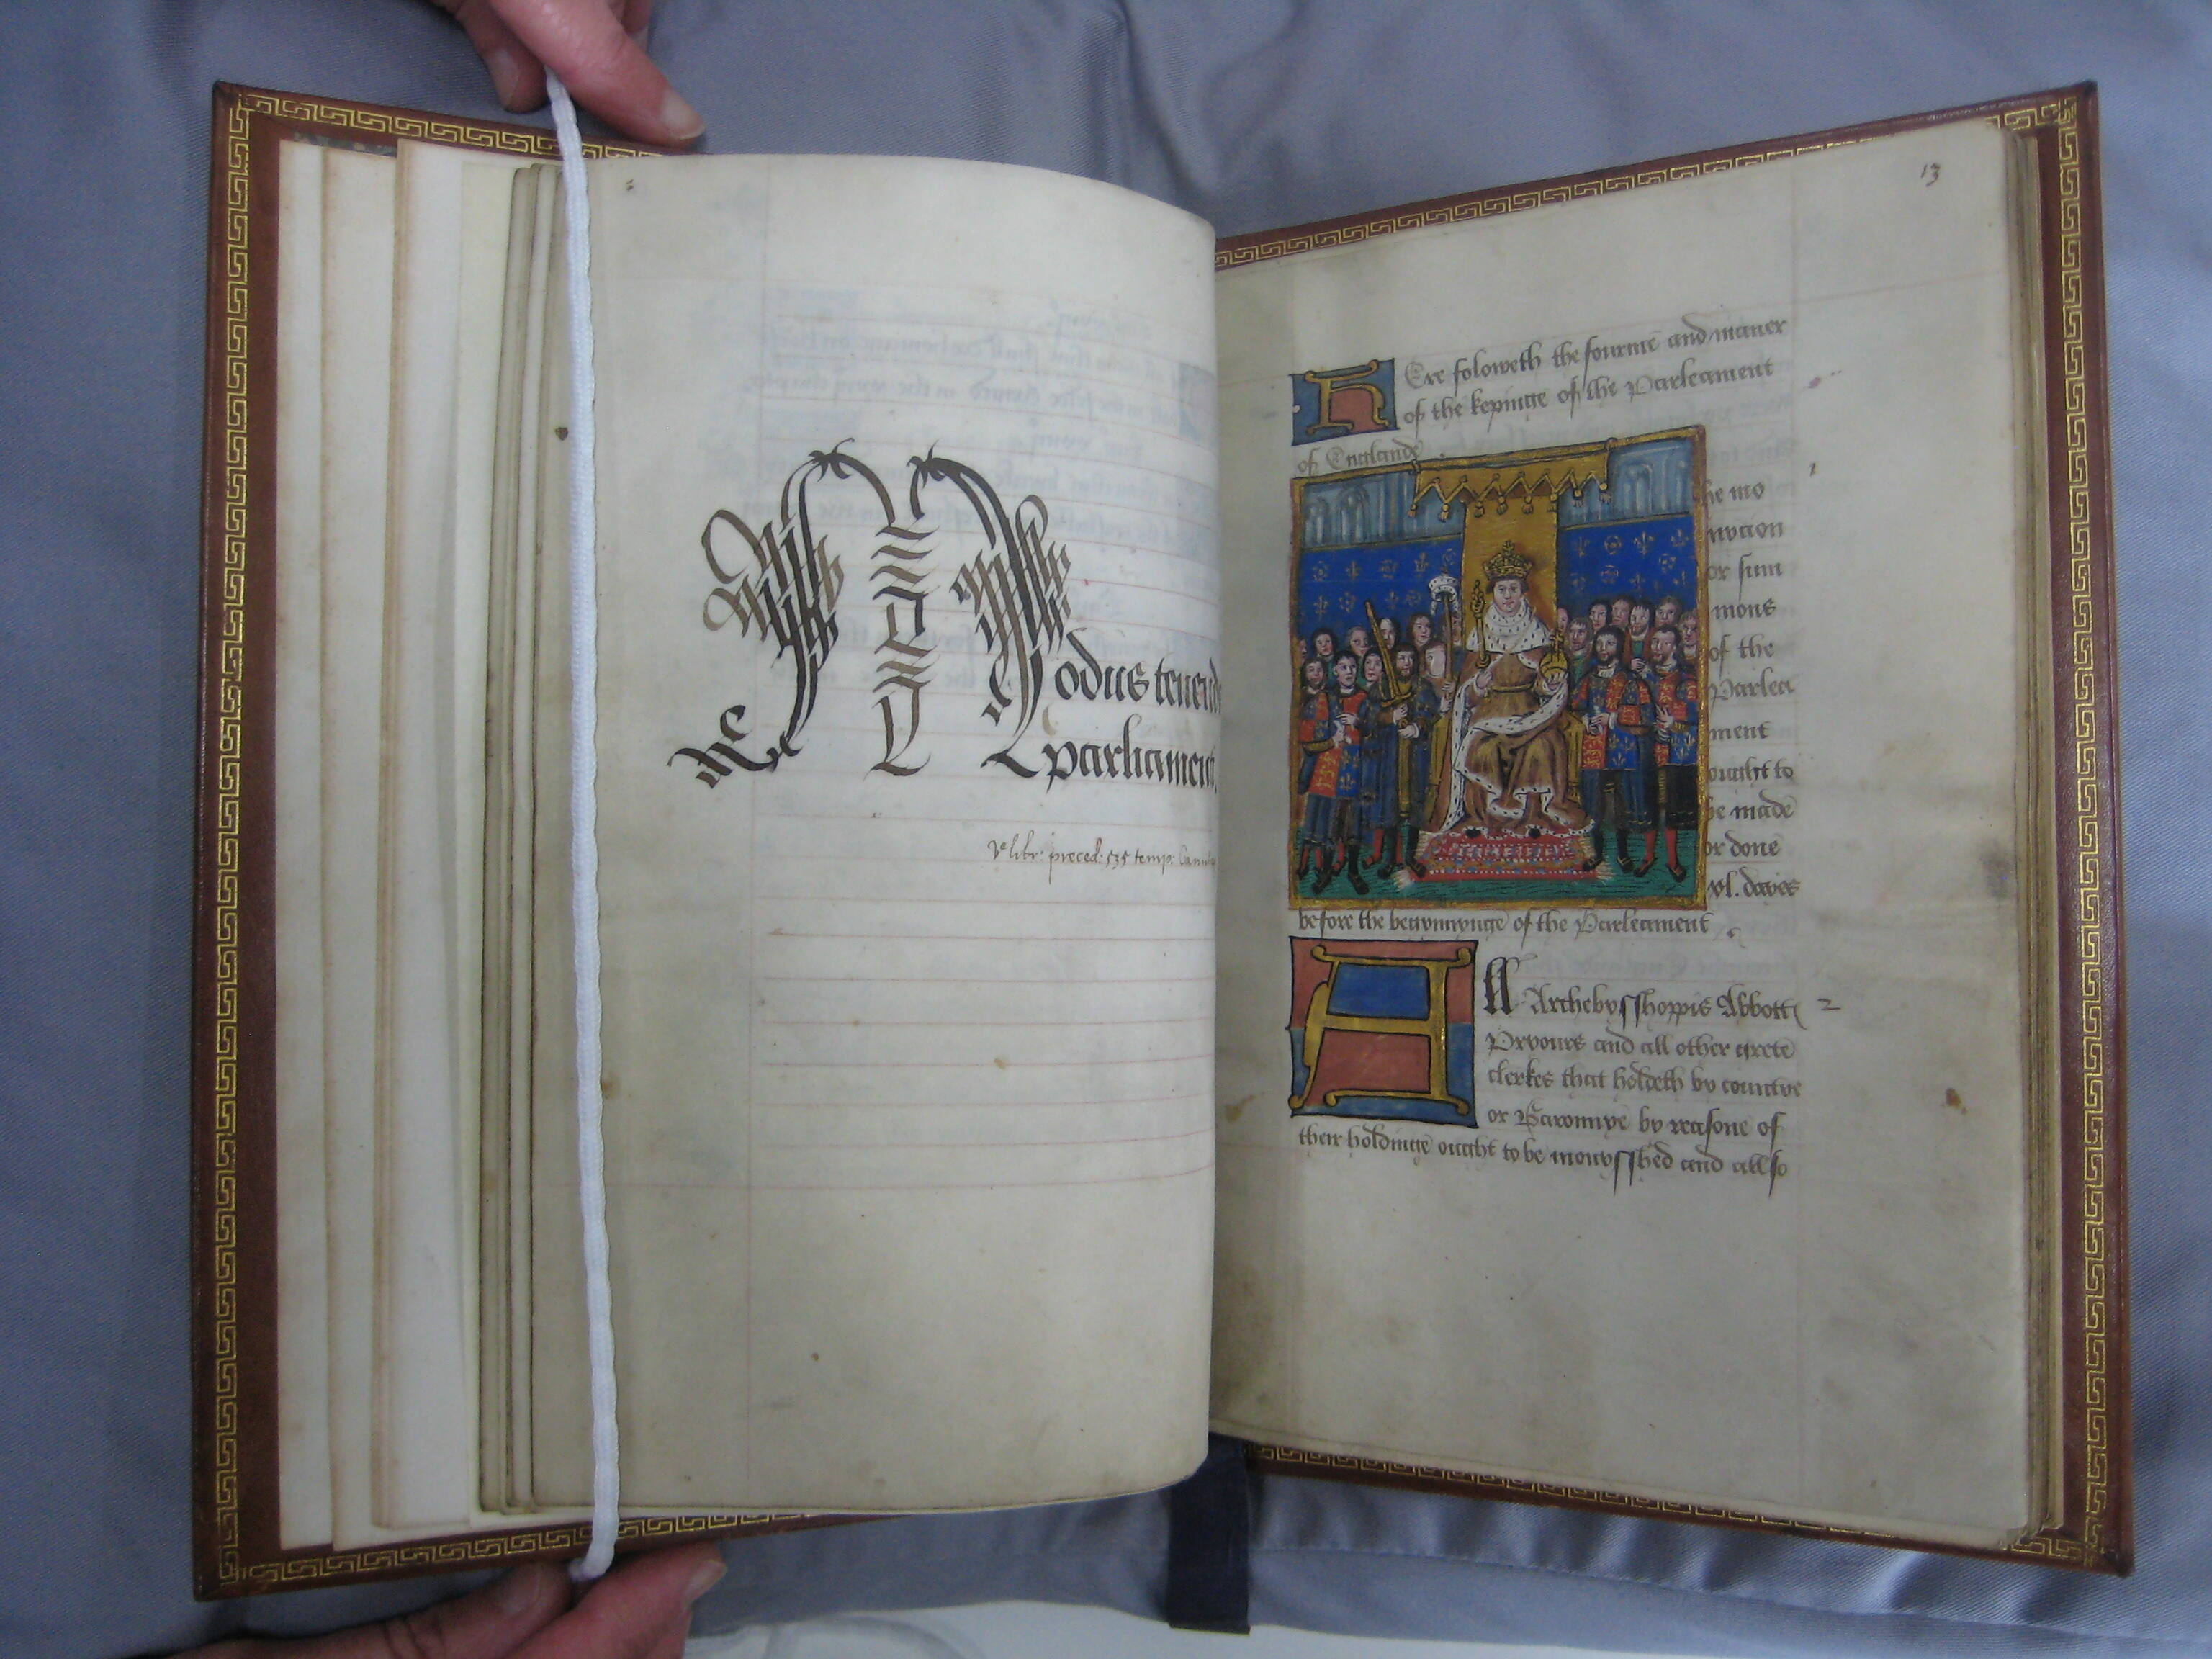 Modus tenend
parliament
Vᵉ libr: preced: 535 temp:
13
HEre foloweth the fourme and maner
of the kepinge of the Parleament
of Englande
he mo
nycion
or sum
mons
of the
Parlea
ment
ought to
be made
or done
xl. dayes
before the begynnynge of the Parleament
1
All Archebysshoppis Abbott
2
Pryours and all other grete
clerkes that holdeth by countye
or Baronnye by reasone of
their holdinge ought to be monysshed and allso